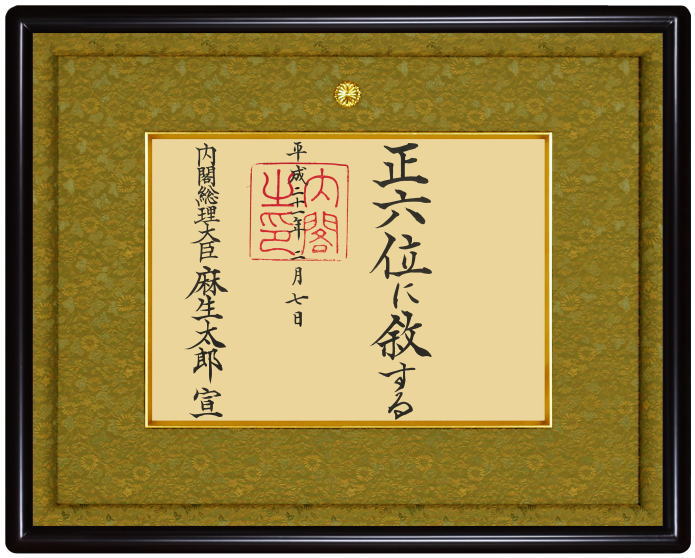 正六位に叙する
平成二十一年二月七日
内閣之印
内閣総理大臣 麻生太郎 宣